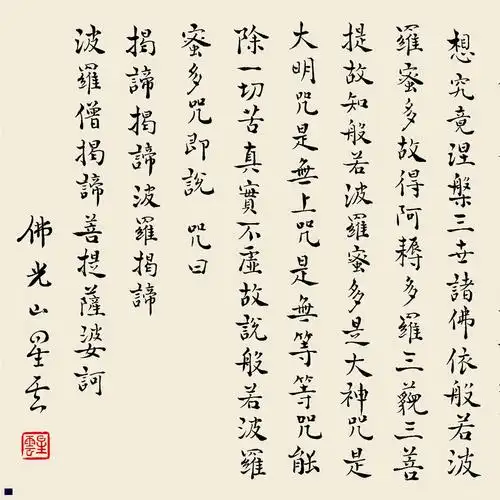 想究竟涅槃三世諸佛依般若波
羅蜜多故得阿耨多羅三藐三菩
提故知般若波羅蜜多是大神咒是
大明咒是無上咒是無等等咒能
除一切苦真實不虛故說般若波羅
蜜多咒即說 咒曰
揭諦揭諦波羅揭諦
波羅僧揭諦菩提薩婆訶
佛光山星雲
星雲